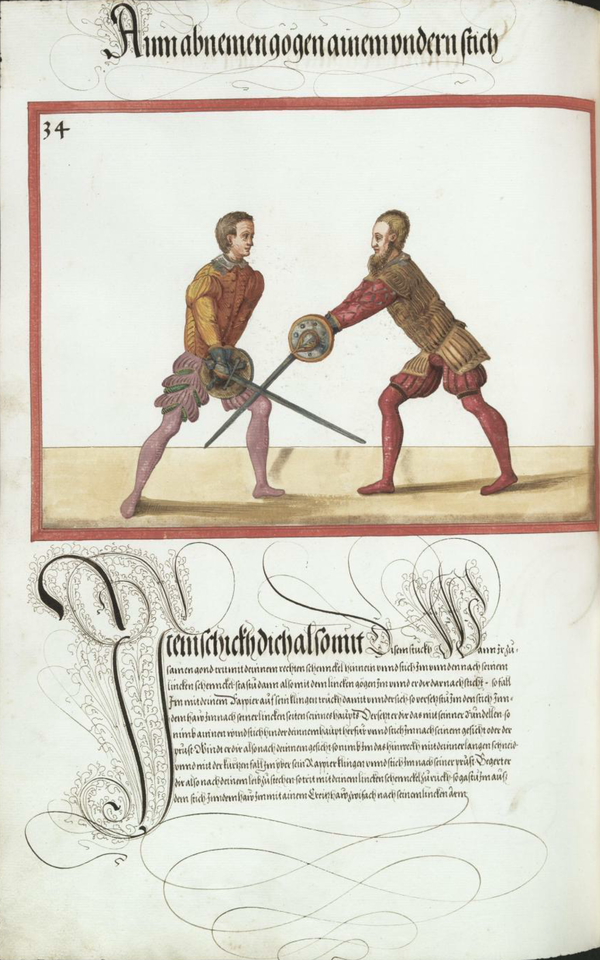 Ainn abnemen gögen ainem vndern stich
34
Item schickh dich also mit Disem stuckh Wann Jr zu-
samen gond trit mit deinnem rechten schennckel hinnein vnnd stich Jm vnnden nach seinem
lincken schennckel stastu dann also mit dem lincken gögen Jm vnnd er dir darnach sticht so fall
Jm mit deinem Rappier auf sein klingen truckh damit vnnder sich so versetzstu Jm den stich Jnn
dem haw Jm nach seiner lincken seiten seinnes haupts Versetzt er dir das mit seinner so
nimb ain nen wind stich hinder deinnem haupt herfür vnnd stich Jm nach seinem gesicht oder der
prust Windt er dir also nach deinem gesicht so nimb Jm das hinweckh mit deinner langen schneid
vnnd mit der kurtzen fall Jm yber sein Rappier klingen vnnd stich Jm nach seiner prust Begert er
dir also nach deinem leib zu stechen so trit mit deinem lincken schennckel zurückh so gastu Jm aus
dem stich Jnn dem haw Jm mit ainem nach seinem lincken Arm